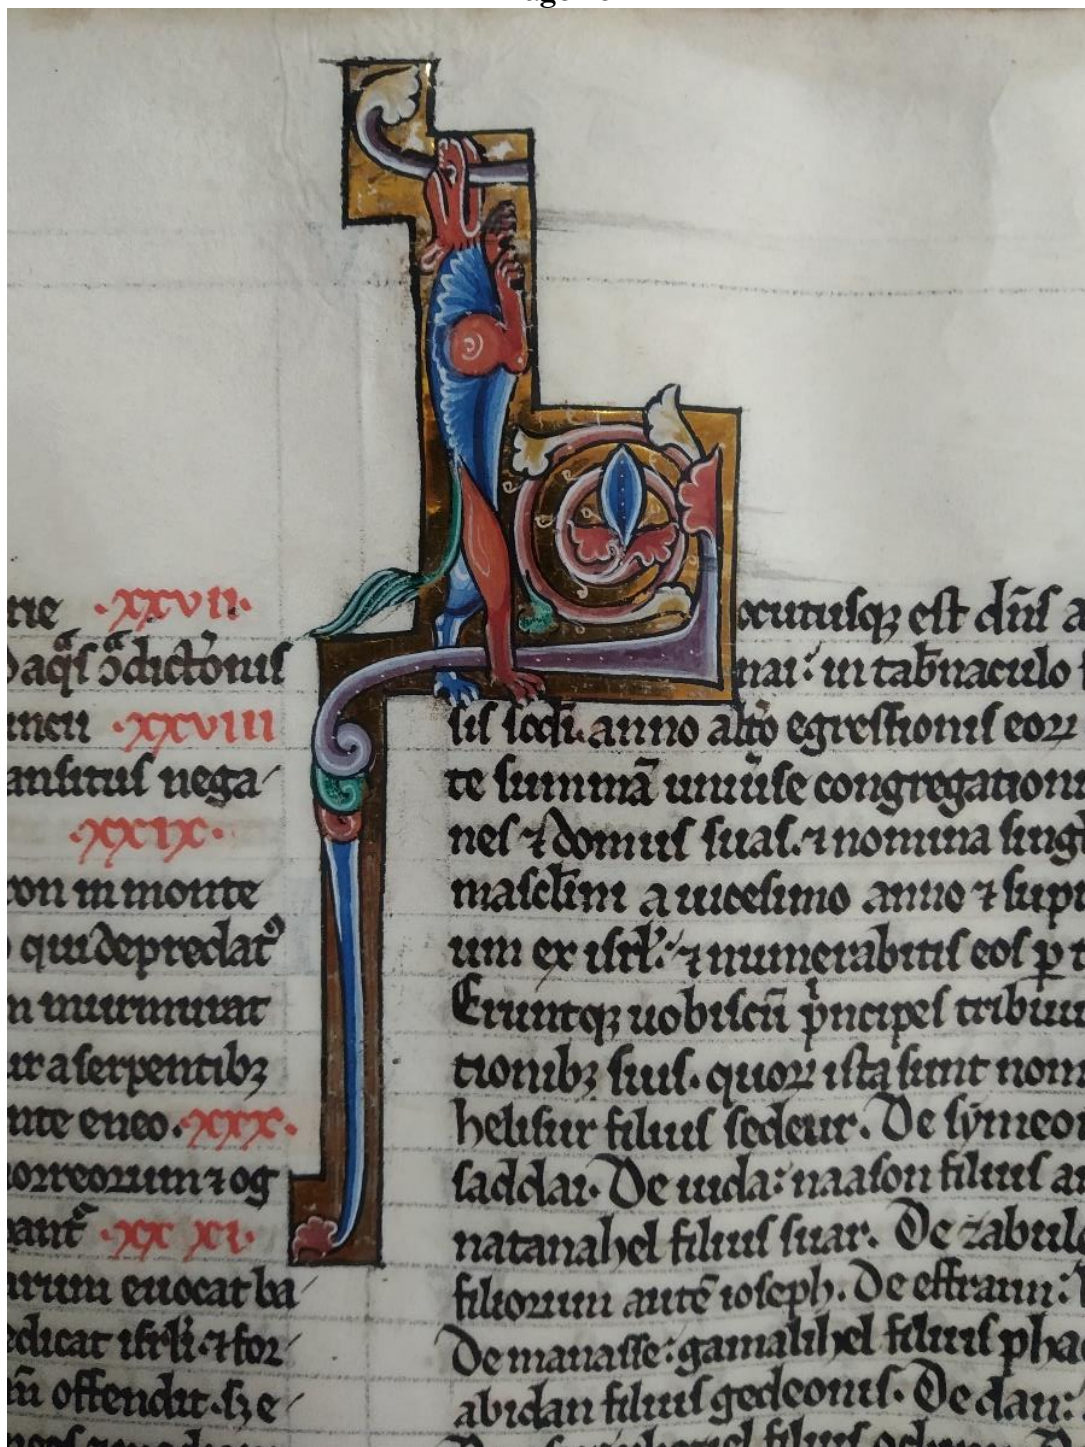 rie ·xxvii·
aq̄s ↄ̄dictōnis
·xxviii
ansitus nega
·xxix·
ron in monte
qui depredat᷒
murmurat
ur a serpentibꝫ
nte eneo ·xxx·
orreorum ⁊ og
bant̄ ·xx xi·
arum euocat ba
edicat isrl̄i· ⁊ for
offendit· hꝫ e
L
ocutusqꝫ est dn̄s a
nai: in tab̄naculo
sis scd̄i· anno alt̄o egressionis eoꝝ
te summā uniu̓se congregationi
nes ⁊ domus suas· ⁊ nomina sing
mascl̄ini a uicesimo anno ⁊ sup
um ex isrl̄: ⁊ numerabitis eos ꝑ t
Eruntqꝫ uobiscū pͥncipes tribuu
tionibꝫ suis· quoꝝ ista sunt nom
helisur filius sedeur· De symeo
saddai· De iuda: naason filius a
natanahel filius suar· De zabul
filiorum autē ioseph· De effraim:
De manasse: gamalihel filius pha
abidan filius gedeonis· De dan: